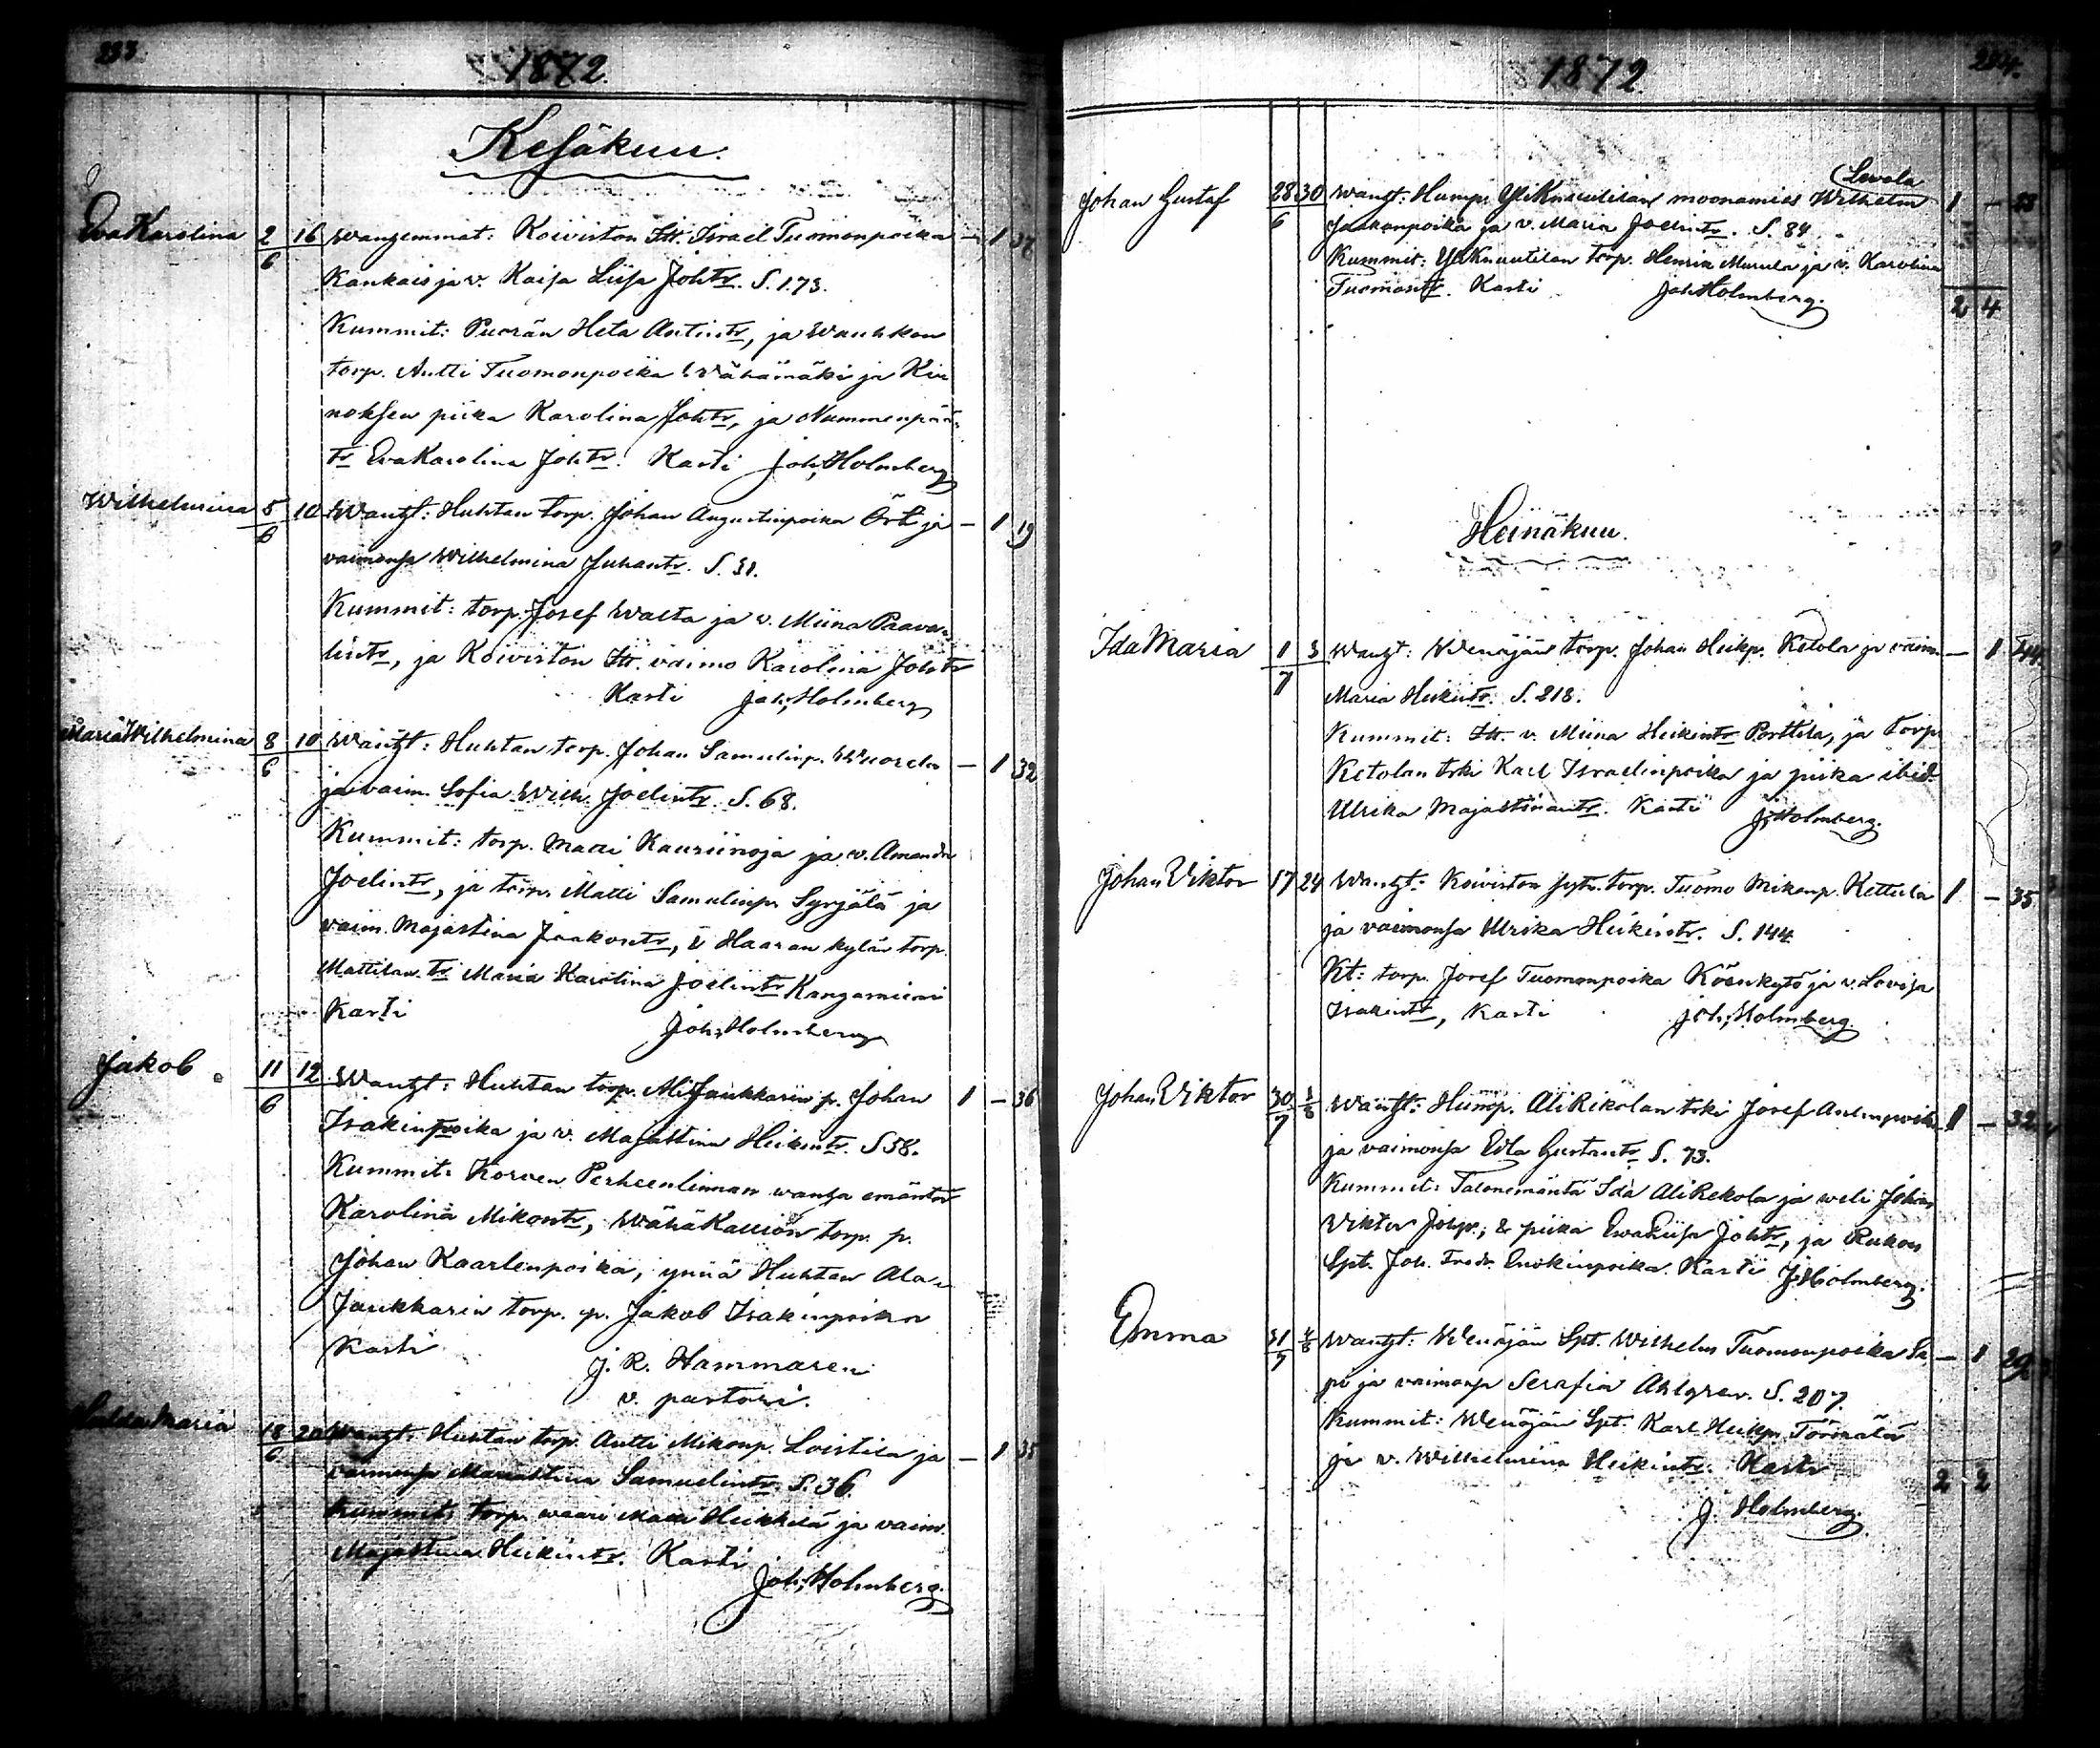 233.
1872.
Kesäkuu.
Eva Karolina 2/6 16 Wangemmat: Koiviston Itt. Israel Tuomonpoika — 1
Kankais ja v. Kaisa Liisa Johtr. S. 173.
Kummit: Heta Antintr, ja Wauhkon
torp. Antti Tuomonpoika Wähämäki ja Kin
noksen piika Karolina Johtr, ja Nummenpää
tr Eva Karolina Johtr. Kasti Joh. Holmberg
Wilhelmina 5/6 10 Wanht: Huhtan torp. Johan Augustinpoika Ört ja — 1 19
vaimonsa Wilhelmina Juhantr. S. 31.
Kummit: torp. Josef Walta ja v. Miina Paava-
lintr, ja Koiviston Itt. vaimo Karolina Johtr
Kasti Joh. Holmberg
Maria Wilhelmina 8/6 10 Wanht: Huhtan torp. Johan Samulinp. Wuorela — 1 32
ja vaim. Sofia Wilh. Joelintr. S. 68.
Kummit: torp. Matti Kauriinoja ja v. Amanda
Joelintr, ja torp. Matti Samulinp. Syrjälä ja
vaim. Majastina Jaakontr, & Haaran kylän torp.
Mattilan tr Maria Karolina Joelintr Kanganiemi
Kasti Joh. Holmberg
Jakob 11/6 12 Wanht: Huhtan torp. Ali Jaukkarin p. Johan 1 — 36
Isakinpoika ja v. Majastina Heikintr. S 58.
Kummit: Korven Perheenlinnan wanha emäntä
Karolina Mikontr, Wähä Kallion torp. p.
Johan Kaarlenpoika, ynnä Huhtan Ala-
Jaukkarin torp. p. Jakob Isakinpoika
Kasti J. R. Hammaren
v. pastori.
Hulda Maria 18/6 20 Wanht: Huhtan torp. Antti Mikonp. Loistila ja — 1 35
vaimonsa Mariastina Samuelintr. S. 36.
Kummit: torp. waari Matti Heikkilä ja vaim.
Majastina Heikintr. Kasti
Joh. Holmberg.
1872.
234.
Levola
Johan Gustaf 28/6 30 Wanht: Hump. YliKnuutilan moonamies Wilhelm 1 —
Jaakonpoika ja v. Maria Joelintr. S. 84.
Kummit: YliKnuutilan torp. Henrik Murula ja v. Karolina
Tuomontr. Kasti Joh. Holmberg.
2 4
Heinäkuu.
Ida Maria 1/7 3 Wanht: Wenäjän torp. Johan Heikp. Ketola ja vaim — 1 44
Maria Heikintr. S. 218.
Kummit: Itt. v. Miina Heikintr Perttilä, ja torp
Ketolan trki Karl Israelinpoika ja piika ibid.
Ulrika Majastinantr. Kasti J. Holmberg.
Johan Viktor 17 24 Wanht: Koiviston torp. Tuomo Mikonp. Kettula 1 — 35
ja vaimonsa Ulrika Heikintr. S. 144
Kt: torp. Josef Tuomonpoika Kösnkytö ja v. Lovisa
Isakintr, Kasti Joh. Holmberg.
Johan Viktor 30/7 Wanht: Hump. AliRikolan trki Josef Antinpoika 1 — 32
ja vaimonsa Edla Gustantr S. 73.
Kummit: Talonemäntä Ida AliRekola ja weli Johan
Viktor Johp., & piika Eva Liisa Johtr, ja
Spt. Joh. Fredr. Enokinpoika. Kasti J. Holmberg.
Emma 31/7 Wanht: Wenäjän Spt. Wilhelm Tuomonpoika — 1 29
ja vaimonsa Serafia Ahlgren. S. 207.
Kummit: Wenäjän Spt. Karl Heikp. Törmälä
ja v. Wilhelmiina Heikintr. Kasti
J. Holmberg.
2 2